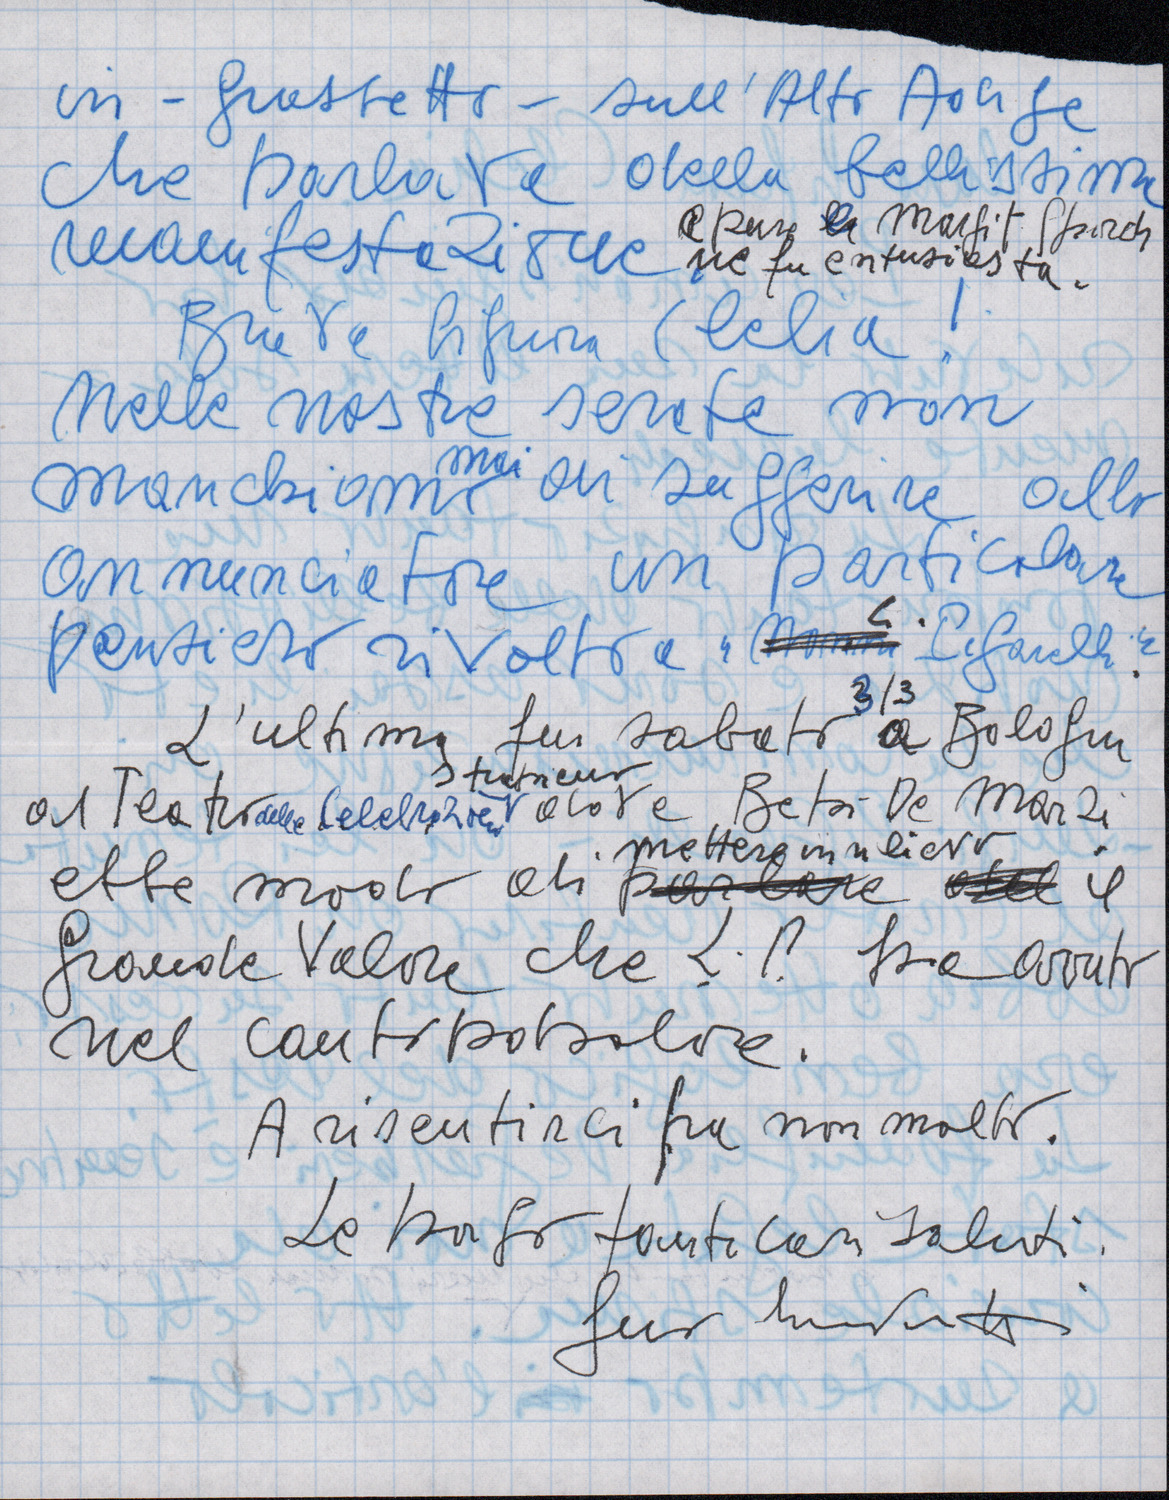 in - grassetto - sull'Alto Adige
che parlava della bellissima
manifestazione e pure la Margit
ne fu entusiasta.
Brava Signora Clelia!
Nelle nostre serate non
manchiamo mai di suggerire allo
annunciatore un particolare
pensiero rivolto a " L. Pigarelli"
L'ultima fu sabato 3/3 a Bologna
al Teatro delle Celebrazioni dove Bepi De Marzi
ebbe modo di mettere in rilievo il
grande valore che L.P. ha avuto
nel canto popolare.
A risentirci fra non molto.
Le porgo tanti cari saluti.